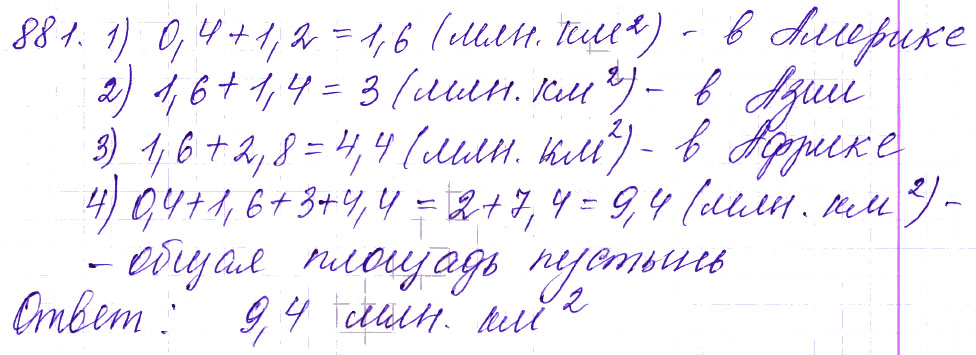 881. 1) 0,4+1,2=1,6 (млн. км²) - в Америке
2) 1,6+1,4=3 (млн. км²) - в Азии
3) 1,6+2,8=4,4 (млн. км²) - в Африке
4) 0,4+1,6+3+4,4=2+7,4=9,4 (млн. км²) -
- общая площадь пустынь
Ответ: 9,4 млн. км²